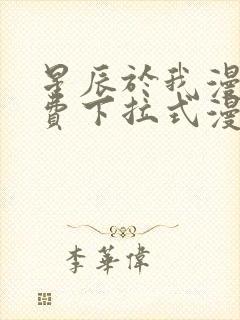 星辰於我漫
費下拉式漫
李華偉